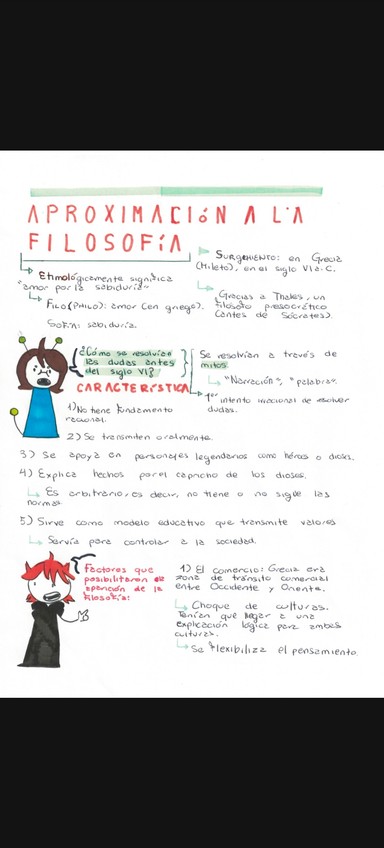 APROXIMACIÓN A LA
FILOSOFÍA
Etimológicamente significa
"amor por la sabiduría"
FILO(PHILO): amor (en griego).
SOFÍA: sabiduría.
SURGIMIENTO: en Grecia
(Mileto), en el siglo VI a.C.
Gracias a Thales, un
filósofo presocrático
(antes de Sócrates).
¿Cómo se resolvían
las dudas antes
del siglo VI?
Se resolvían a través de
mitos.
"Narración", "palabra".
1er intento irracional de resolver
dudas.
CARACTERÍSTICA
1) No tiene fundamento
racional.
2) Se transmiten oralmente.
3) Se apoya en personajes legendarios como héroes o dioses.
4) Explica hechos por el capricho de los dioses.
Es arbitrario, es decir, no tiene o no sigue las
normas
5) Sirve como modelo educativo que transmite valores
Servía para controlar a la sociedad.
Factores que
posibilitaron
aparición de la
filosofía:
1) El comercio: Grecia era
zona de tránsito comercial
entre Occidente y Oriente.
Choque de culturas.
Tenían que llegar a una
explicación lógica para ambas
culturas.
Se flexibiliza el pensamiento.